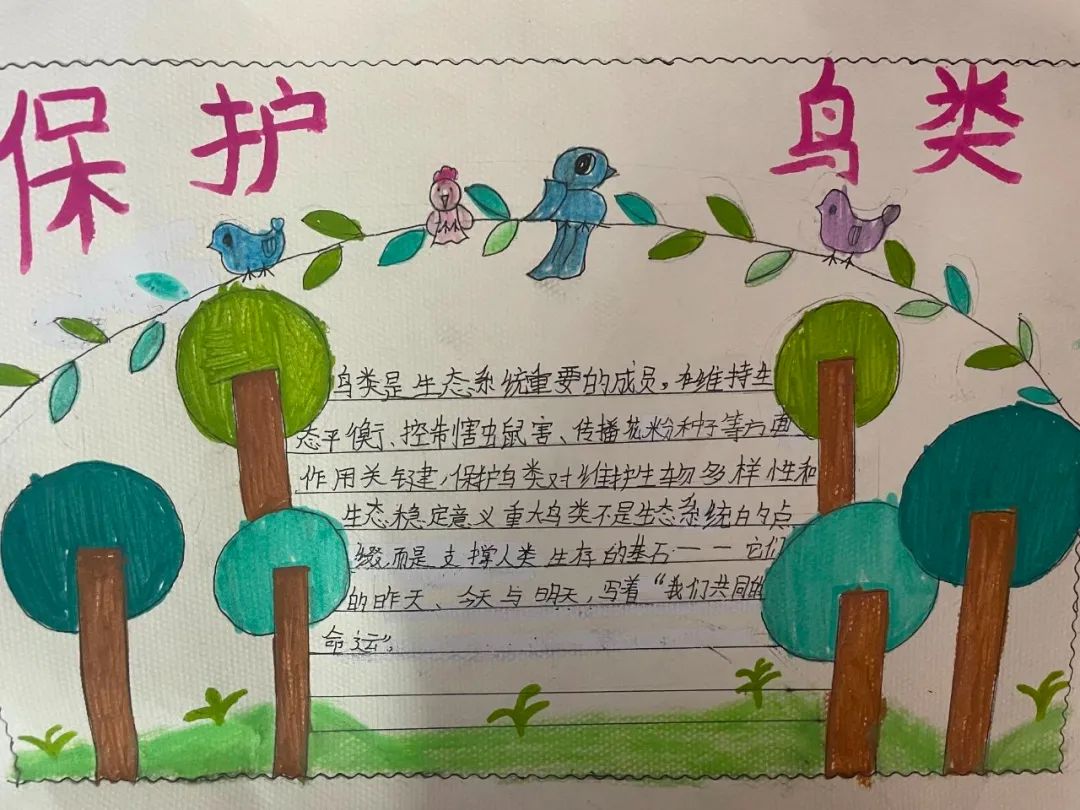 保护 鸟类
鸟类是生态系统重要的成员,在维持生
态平衡、控制害虫鼠害、传播花粉种子等方面
作用关键,保护鸟类对维护生物多样性和
生态稳定意义重大鸟类不是生态系统的点
缀,而是支撑人类生存的基石——它们
的昨天、今天与明天,写着“我们共同的
命运”。